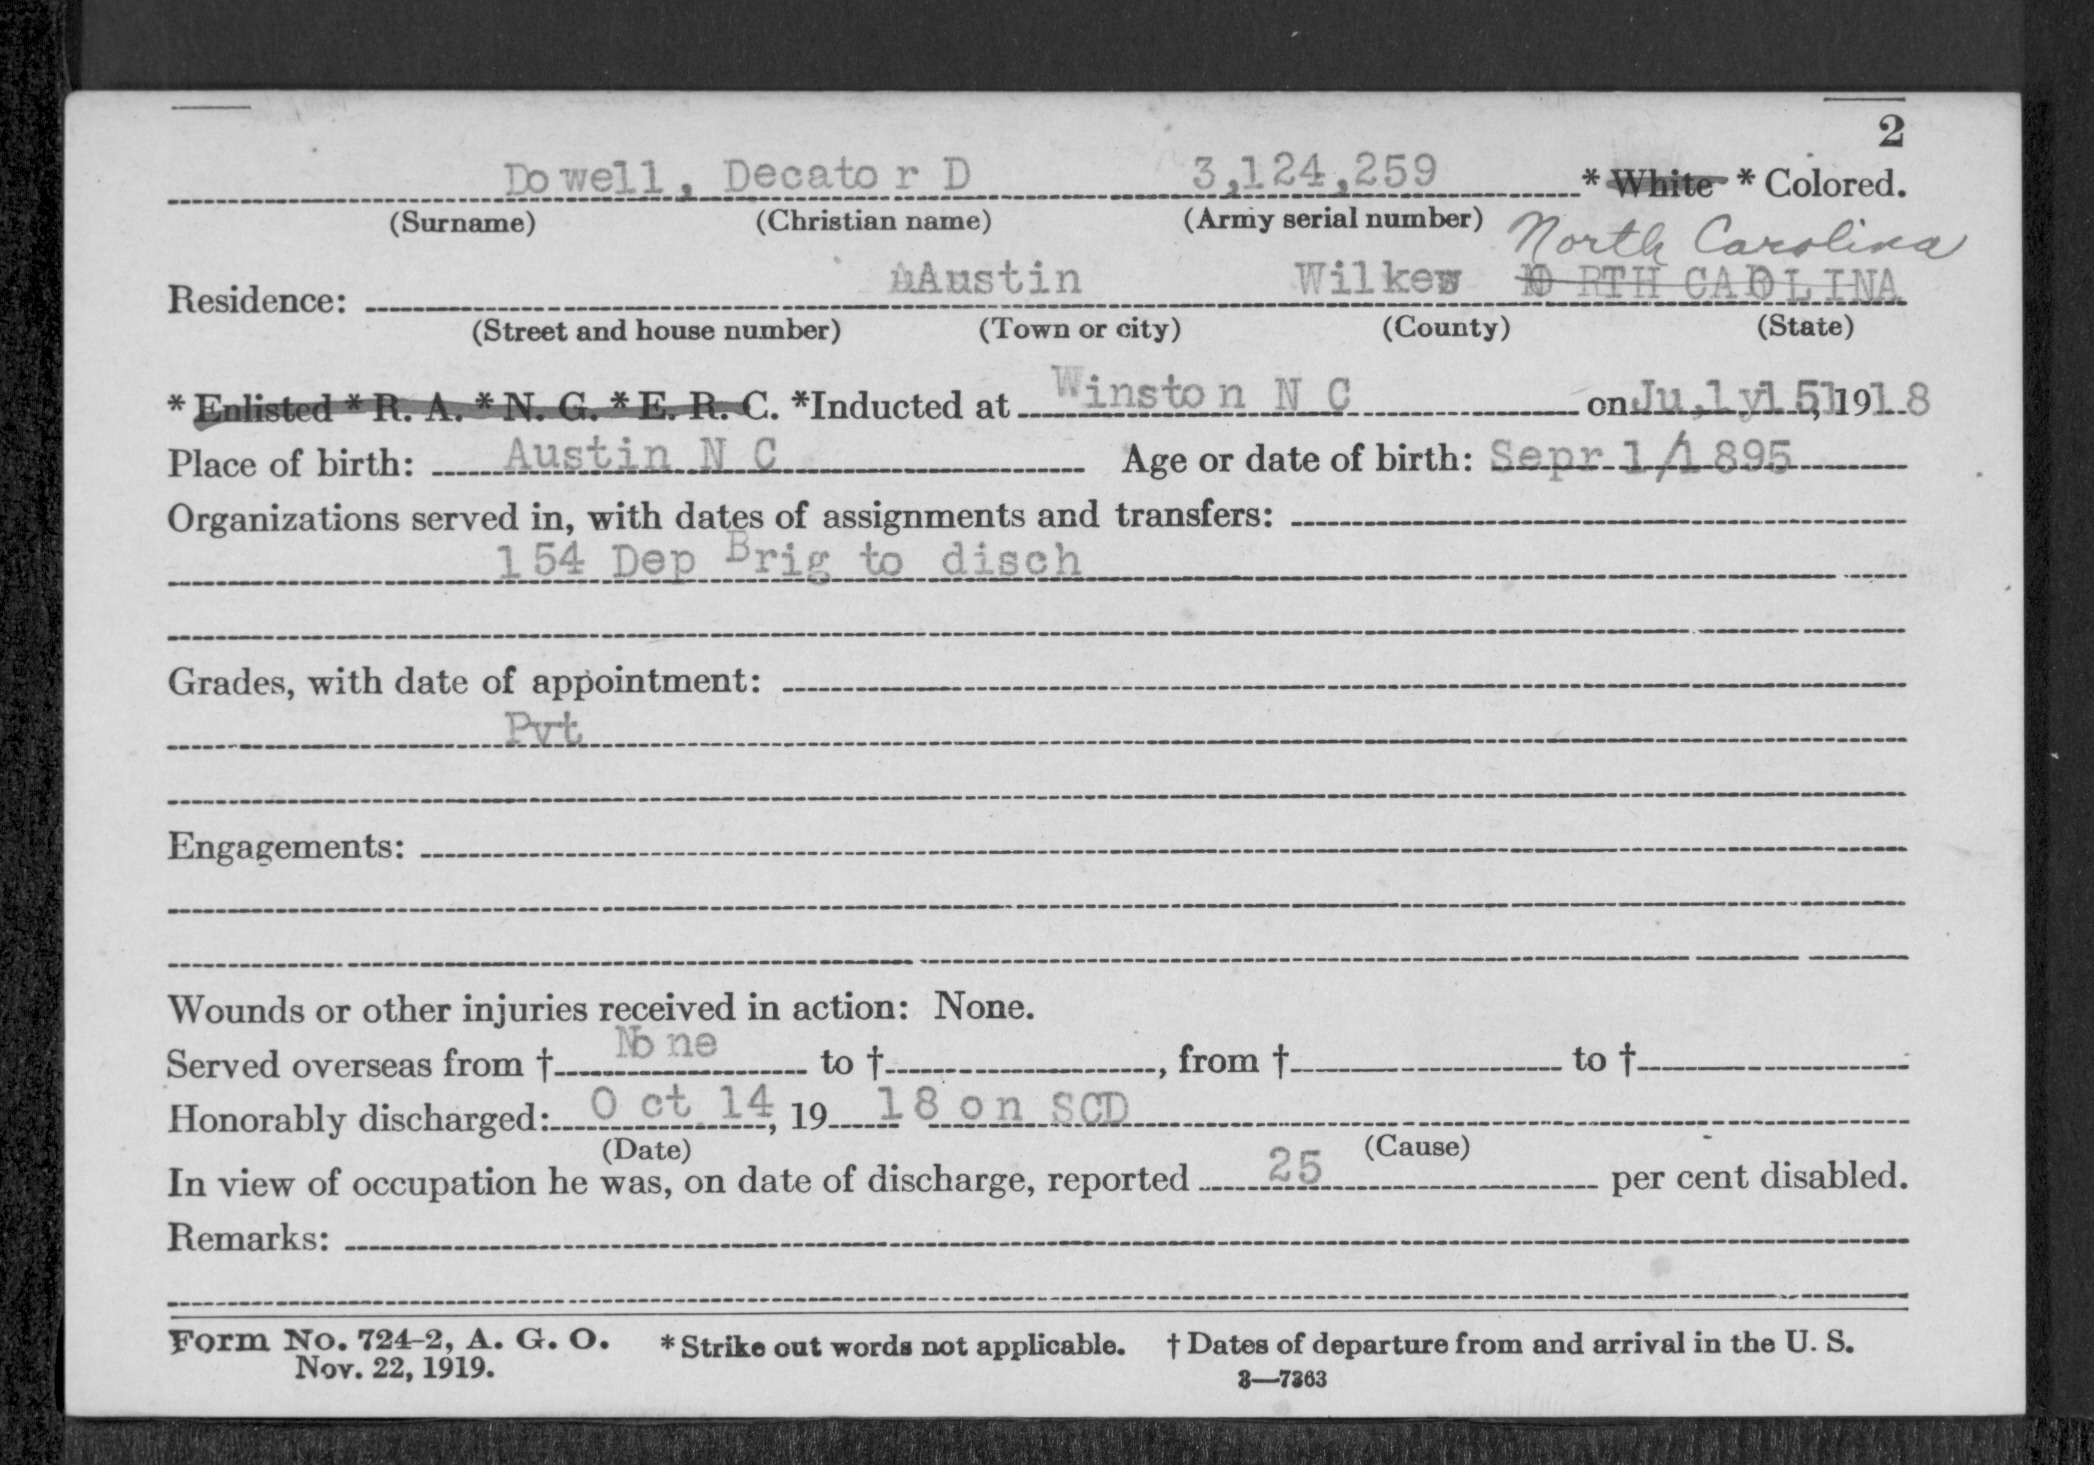 2
Dowell, Decator D 3,124,259 * White * Colored.
(Surname) (Christian name) (Army serial number)
North Carolina
Residence: AAustin Wilkes NORTH CAROLINA
(Street and house number) (Town or city) (County) (State)
* Enlisted * R. A. * N. G. * E. R. C. *Inducted at Winston N C on July 15, 1918
Place of birth: Austin N C Age or date of birth: Sepr 1/1895
Organizations served in, with dates of assignments and transfers:
154 Dep Brig to disch
Grades, with date of appointment:
Pvt
Engagements:
Wounds or other injuries received in action: None.
Served overseas from † None to †, from † to †
Honorably discharged: Oct 14, 1918 on SCD
(Date) (Cause)
In view of occupation he was, on date of discharge, reported 25 per cent disabled.
Remarks:
Form No. 724-2, A. G. O. * Strike out words not applicable. † Dates of departure from and arrival in the U. S.
Nov. 22, 1919. 3—7363